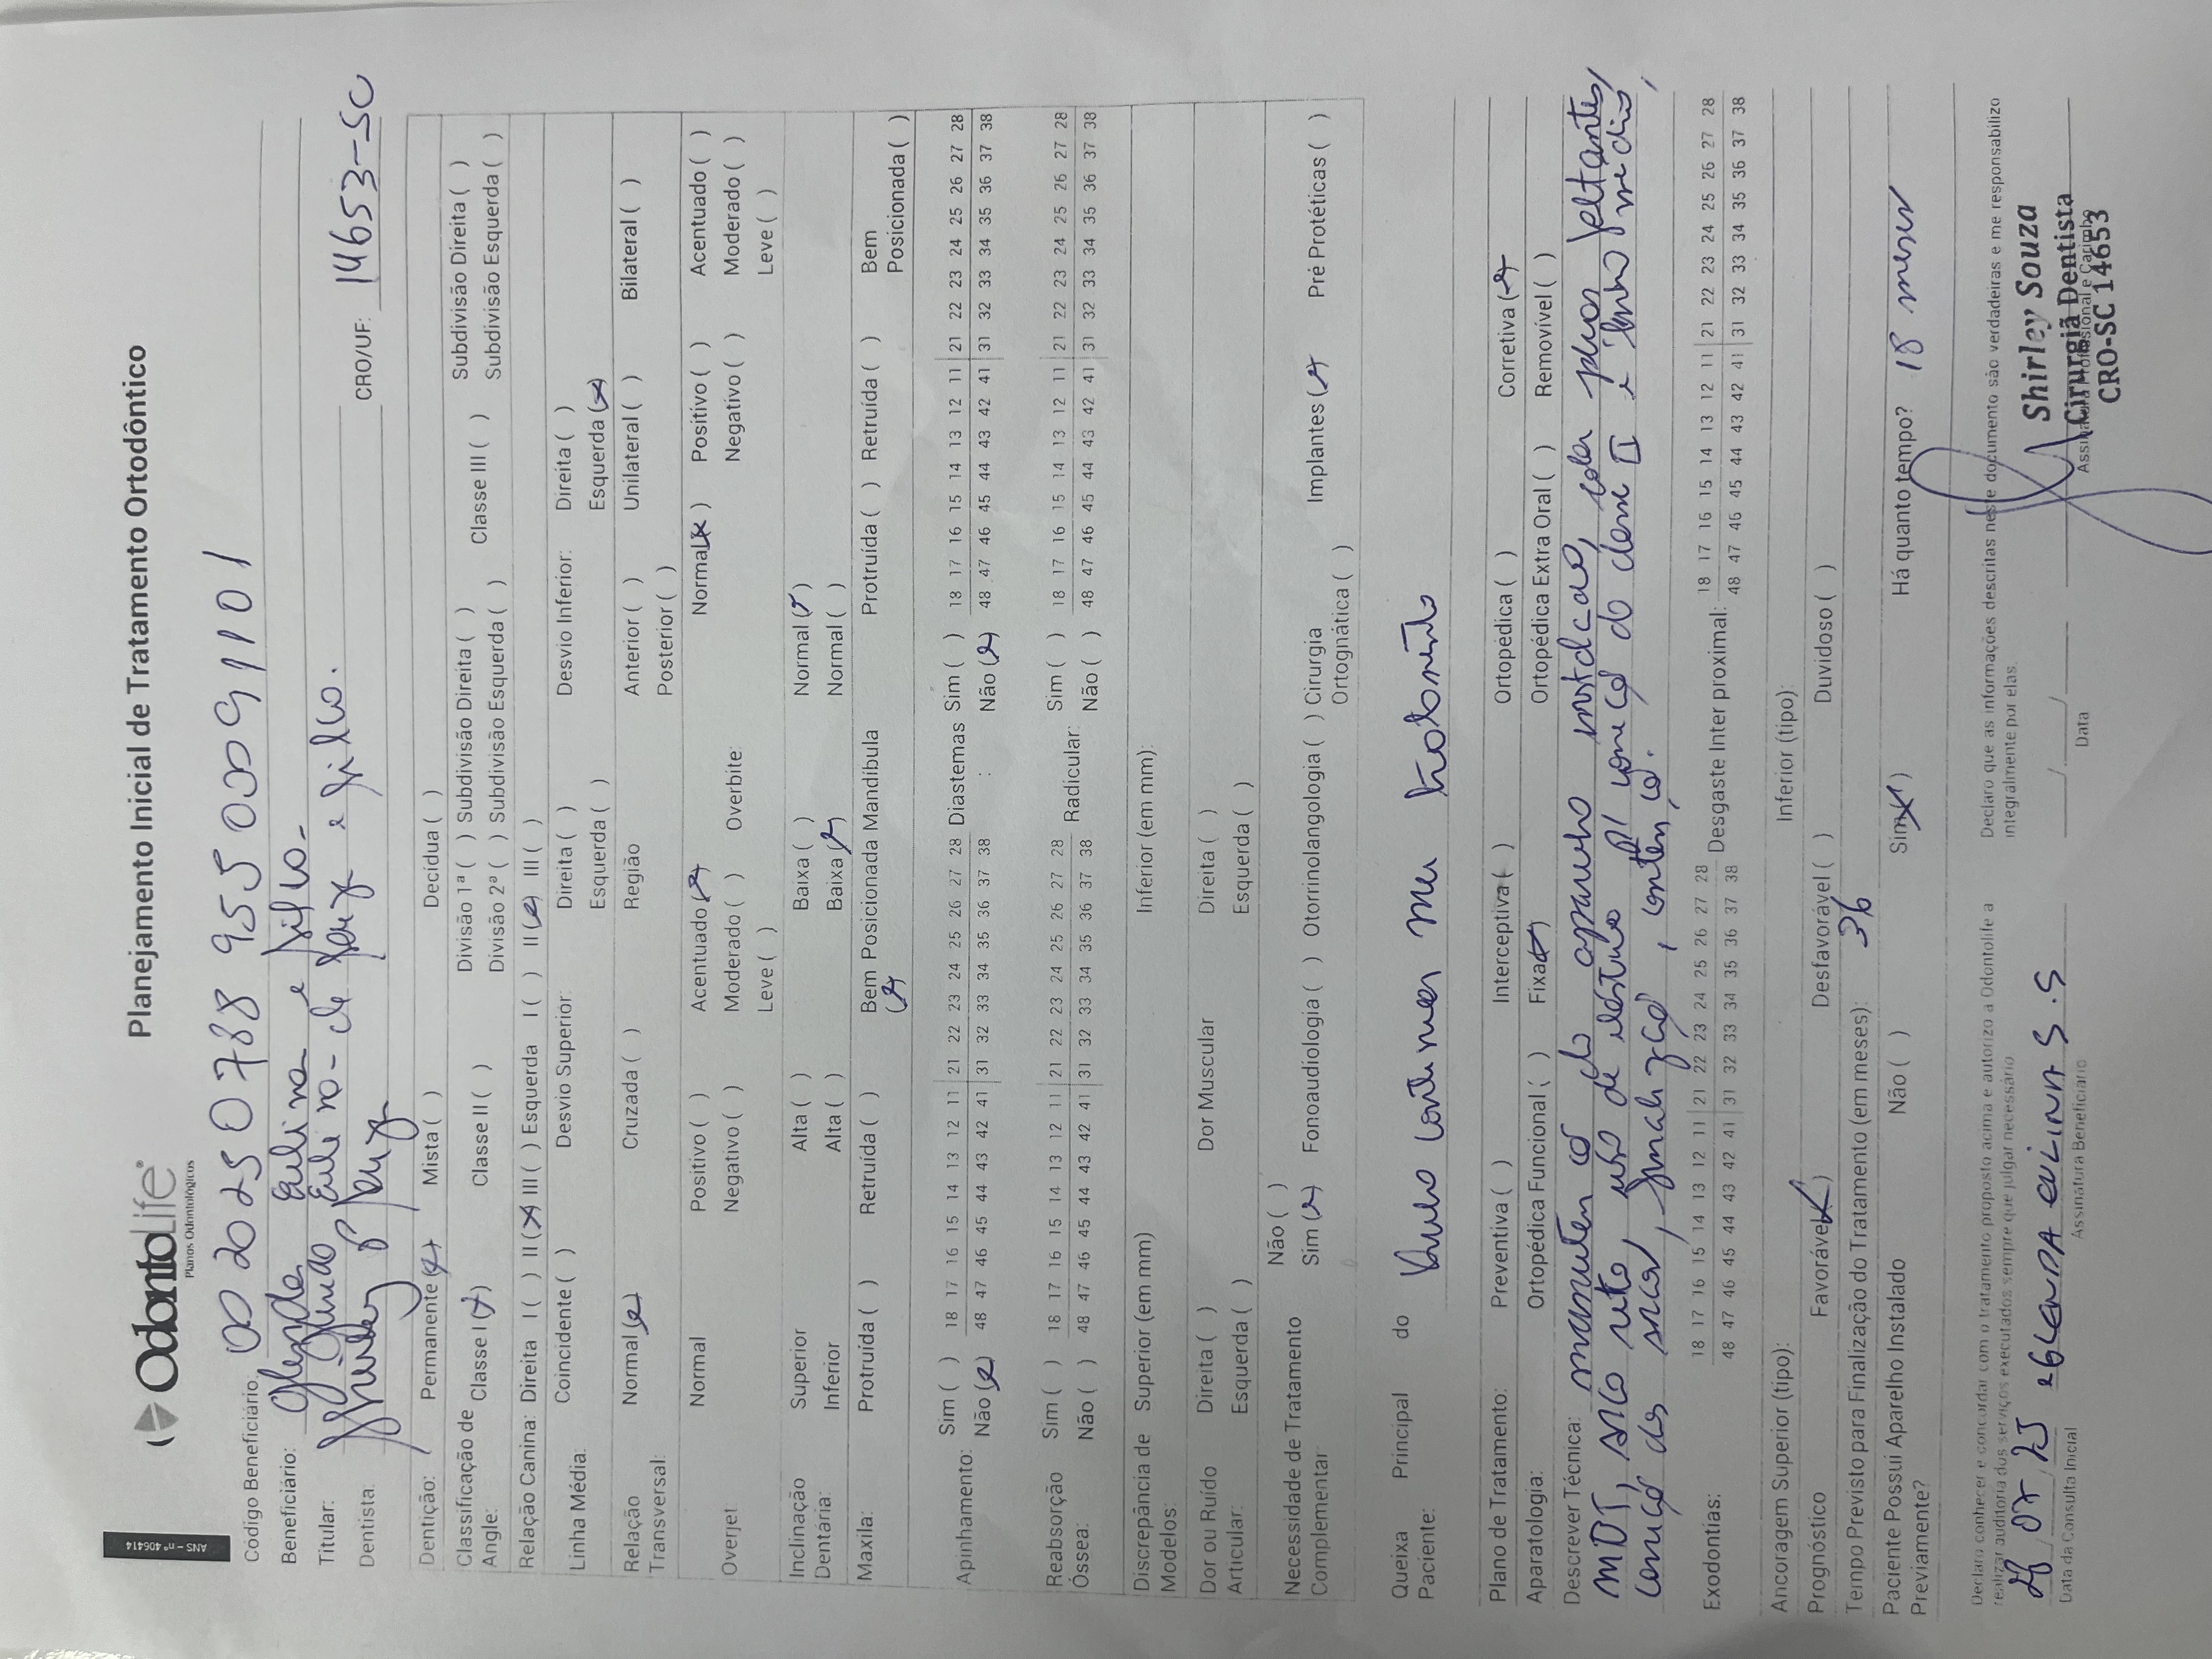 ANS - nº 406414
OdontoLife®
Planos Odontológicos
Planejamento Inicial de Tratamento Ortodôntico
Código Beneficiário: 00 2025 0788 955 0009 1101
Beneficiário: Glenda Eulina e Silva-
Titular: Eulina- de Souza e Silva.
Dentista: Shirley Souza CRO/UF: 14653-SC
Dentição: Permanente (x) Mista ( ) Decídua ( )
Classificação de Angle: Classe I (x) Classe II ( ) Divisão 1ª ( ) Subdivisão Direita ( ) Classe III ( ) Subdivisão Direita ( )
Divisão 2ª ( ) Subdivisão Esquerda ( ) Subdivisão Esquerda ( )
Relação Canina: Direita I ( ) II (x) III ( ) Esquerda I ( ) II (x) III ( )
Linha Média: Coincidente ( ) Desvio Superior: Direita ( ) Desvio Inferior: Direita ( )
Esquerda ( ) Esquerda (x)
Relação Transversal: Normal (x) Cruzada ( ) Região Anterior ( ) Unilateral ( ) Bilateral ( )
Posterior ( )
Overjet Normal Positivo ( ) Acentuado (x) Overbite: Normal (x) Positivo ( ) Acentuado ( )
Negativo ( ) Moderado ( ) Negativo ( ) Moderado ( )
Leve ( ) Leve ( )
Inclinação Dentária: Superior Alta ( ) Baixa ( ) Normal (x)
Inferior Alta ( ) Baixa (x) Normal ( )
Maxila: Protruída ( ) Retruída ( ) Bem Posicionada (x) Mandíbula Protruída ( ) Retruída ( ) Bem Posicionada ( )
Apinhamento: Sim ( ) 18 17 16 15 14 13 12 11 21 22 23 24 25 26 27 28 Diastemas : Sim ( ) 18 17 16 15 14 13 12 11 21 22 23 24 25 26 27 28
Não (x) 48 47 46 45 44 43 42 41 31 32 33 34 35 36 37 38 Não (x) 48 47 46 45 44 43 42 41 31 32 33 34 35 36 37 38
Reabsorção Óssea: Sim ( ) 18 17 16 15 14 13 12 11 21 22 23 24 25 26 27 28 Radicular: Sim ( ) 18 17 16 15 14 13 12 11 21 22 23 24 25 26 27 28
Não ( ) 48 47 46 45 44 43 42 41 31 32 33 34 35 36 37 38 Não ( ) 48 47 46 45 44 43 42 41 31 32 33 34 35 36 37 38
Discrepância de Modelos: Superior (em mm) Inferior (em mm):
Dor ou Ruído Articular: Direita ( ) Dor Muscular Direita ( )
Esquerda ( ) Esquerda ( )
Necessidade de Tratamento Complementar Não ( )
Sim (x) Fonoaudiologia ( ) Otorrinolangologia ( ) Cirurgia Ortognática ( ) Implantes (x) Pré Protéticas ( )
Queixa Principal do Paciente: Quero continuar meu tratamento
Plano de Tratamento: Preventiva ( ) Interceptiva ( ) Ortopédica ( ) Corretiva (x)
Aparatologia: Ortopédica Funcional ( ) Fixa (x) Ortopédica Extra Oral ( ) Removível ( )
Descrever Técnica: manuten có do aparelho instalado, colar peças faltantes,
MDT, arco reto, uso de elástico p/ correçã da classe II e linha média,
correçã das , finalizaçã, conten, cã.
Exodontias: 18 17 16 15 14 13 12 11 21 22 23 24 25 26 27 28 Desgaste Inter proximal: 18 17 16 15 14 13 12 11 21 22 23 24 25 26 27 28
48 47 46 45 44 43 42 41 31 32 33 34 35 36 37 38 48 47 46 45 44 43 42 41 31 32 33 34 35 36 37 38
Ancoragem Superior (tipo): Inferior (tipo):
Prognóstico Favorável (x) Desfavorável ( ) Duvidoso ( )
Tempo Previsto para Finalização do Tratamento (em meses): 36
Paciente Possui Aparelho Instalado Previamente? Não ( ) Sim (x) Há quanto tempo? 18 meses
Declaro conhecer e concordar com o tratamento proposto acima e autorizo a Odontolife a
realizar auditoria dos serviços executados sempre que julgar necessário
Declaro que as informações descritas neste documento são verdadeiras e me responsabilizo
integralmente por elas.
28 07 25 GLENDA EULINA S.S
Data da Consulta Inicial Assinatura Beneficiário
Data
Assinatura Profissional e Carimbo
Shirley Souza
Cirurgiã Dentista
CRO-SC 14653